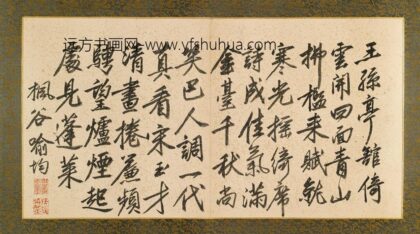 远方书画网:www.yfshuhua.com
王孫亭館倚
雲開四面青山
拂檻來賦就
寒光摇綺席
詩成佳氣滿
金臺千秋尚
笑巴人調一代
真看宋玉才
清晝捲簾頻
騁望爐煙起
處見蓬萊
楓谷喻均